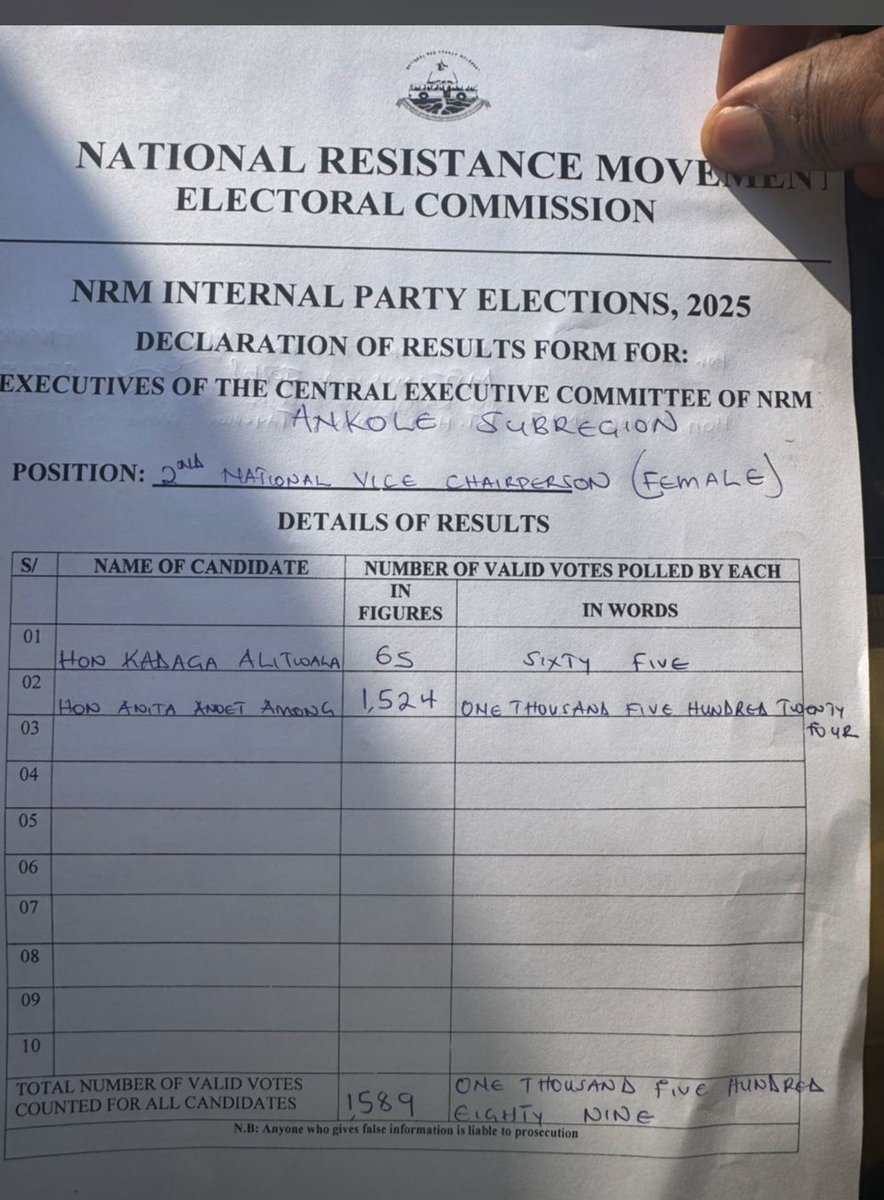 NATIONAL RESISTANCE MOVEMENT
ELECTORAL COMMISSION
NRM INTERNAL PARTY ELECTIONS, 2025
DECLARATION OF RESULTS FORM FOR:
EXECUTIVES OF THE CENTRAL EXECUTIVE COMMITTEE OF NRM
ANKOLE SUBREGION
POSITION: 2ND NATIONAL VICE CHAIRPERSON (FEMALE)
DETAILS OF RESULTS
S/ NAME OF CANDIDATE NUMBER OF VALID VOTES POLLED BY EACH
IN FIGURES IN WORDS
01 HON KADAGA ALITWALA 65 SIXTY FIVE
02 HON ANITA ANNET AMONG 1,524 ONE THOUSAND FIVE HUNDRED TWENTY FOUR
03
04
05
06
07
08
09
10
TOTAL NUMBER OF VALID VOTES
COUNTED FOR ALL CANDIDATES 1,589 ONE THOUSAND FIVE HUNDRED
EIGHTY NINE
N.B: Anyone who gives false information is liable to prosecution